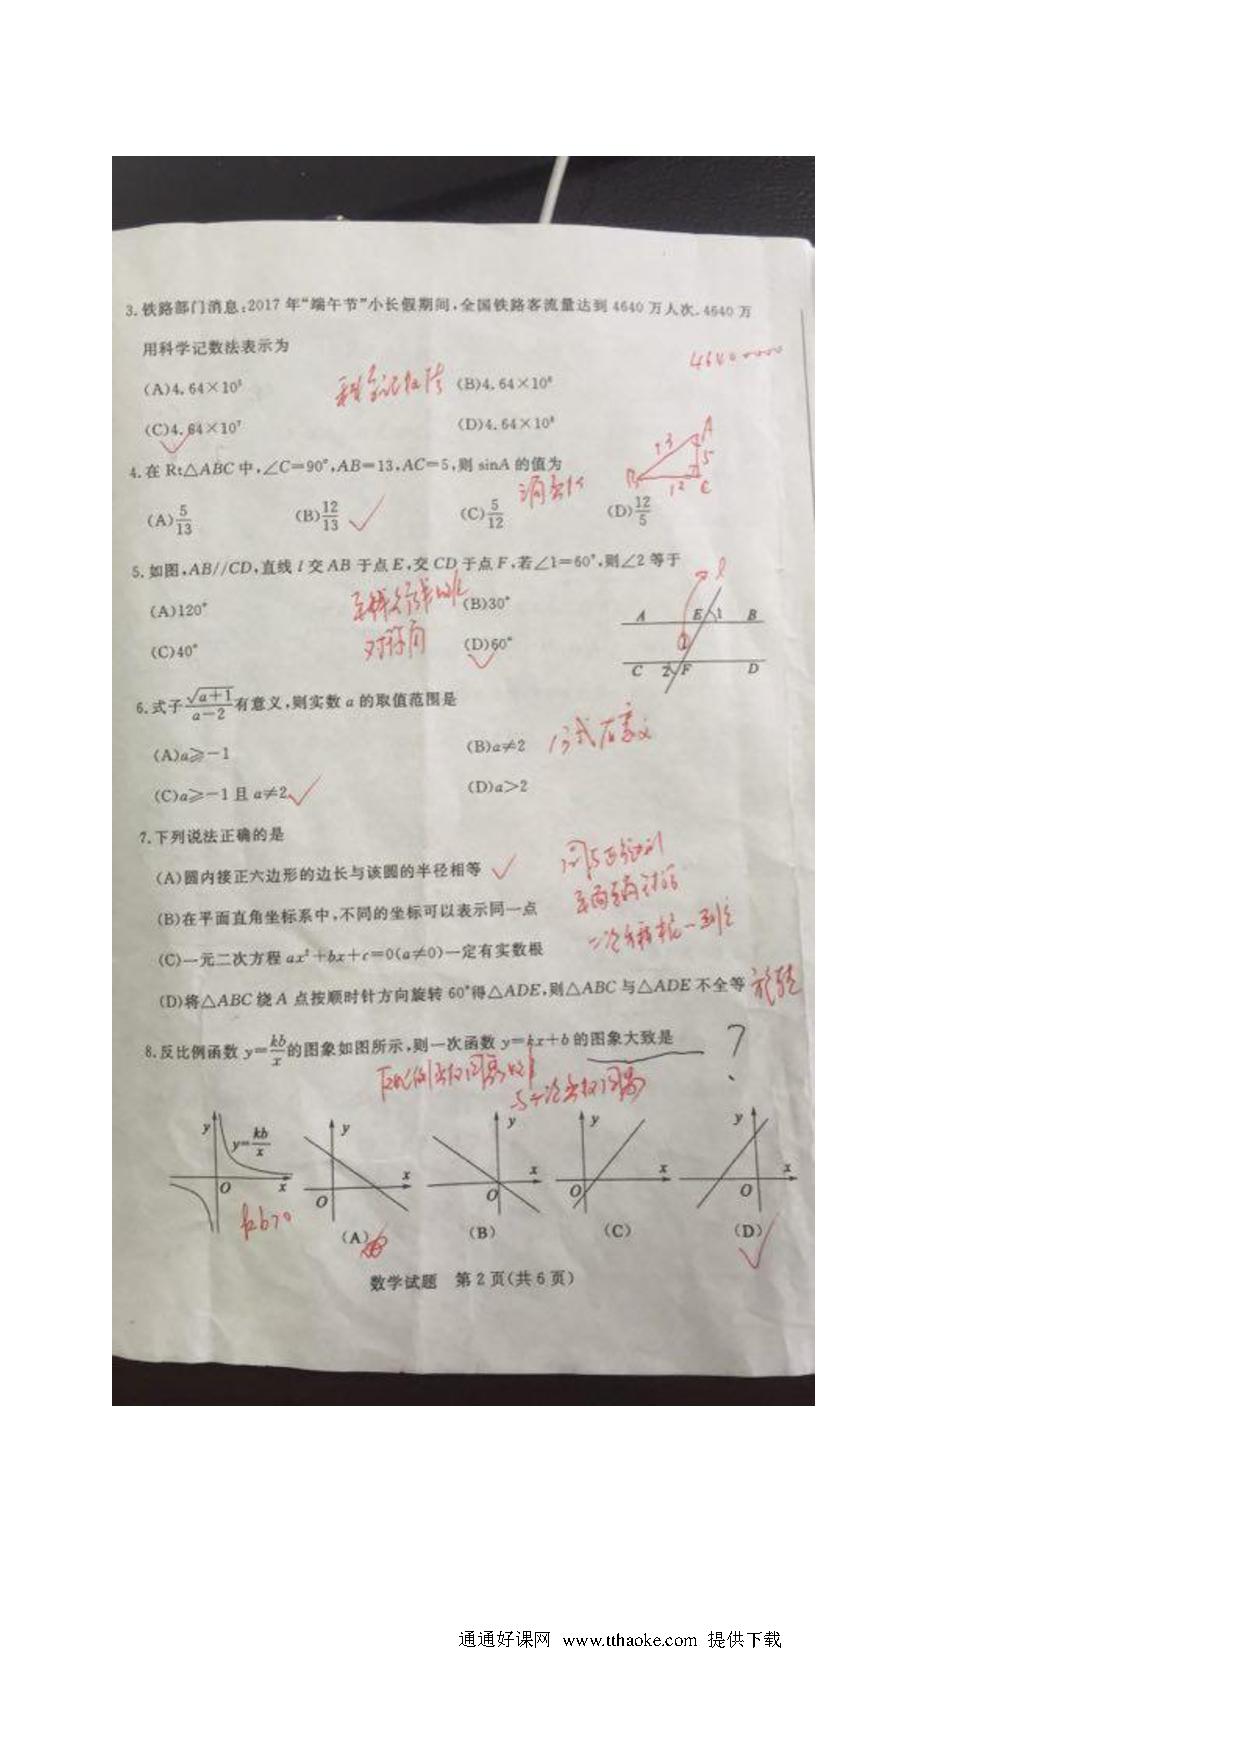 3.铁路部门消息:2017年“端午节”小长假期间,全国铁路客流量达到4640万人次.4640万
用科学记数法表示为
4640
(A)4.64×10⁵ 科学记数法 (B)4.64×10⁶
(C)4.64×10⁷ (D)4.64×10⁸
4.在Rt△ABC中,∠C=90°,AB=13,AC=5,则sinA的值为
13 A 5 B 12 C
(A)5/13 (B)12/13 (C)5/12 (D)12/5
5.如图,AB//CD,直线l交AB于点E,交CD于点F,若∠1=60°,则∠2等于
(A)120° (B)30°
(C)40° (D)60°
l
A E 1 B
C 2 F D
6.式子√(a+1)/(a-2)有意义,则实数a的取值范围是
(A)a⩾-1 (B)a≠2
(C)a⩾-1且a≠2 (D)a>2
7.下列说法正确的是
(A)圆内接正六边形的边长与该圆的半径相等
(B)在平面直角坐标系中,不同的坐标可以表示同一点
(C)一元二次方程ax²+bx+c=0(a≠0)一定有实数根
(D)将△ABC绕A点按顺时针方向旋转60°得△ADE,则△ABC与△ADE不全等 旋转
8.反比例函数y=kb/x的图象如图所示,则一次函数y=kx+b的图象大致是 ?
反比例函数图象
与一次函数图象
y y=kb/x O x
y x O
y x O
y x O
y x O
kb>0
(A) (B) (C) (D)
数学试题 第2页(共6页)
通通好课网 www.tthaoke.com 提供下载